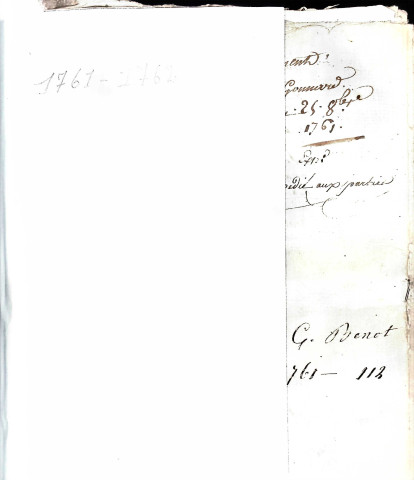 1761-1762
ment
Gonnard
25. 8bre
1761.
Ext.
pédié aux parties
G. Benot
1761 - 112